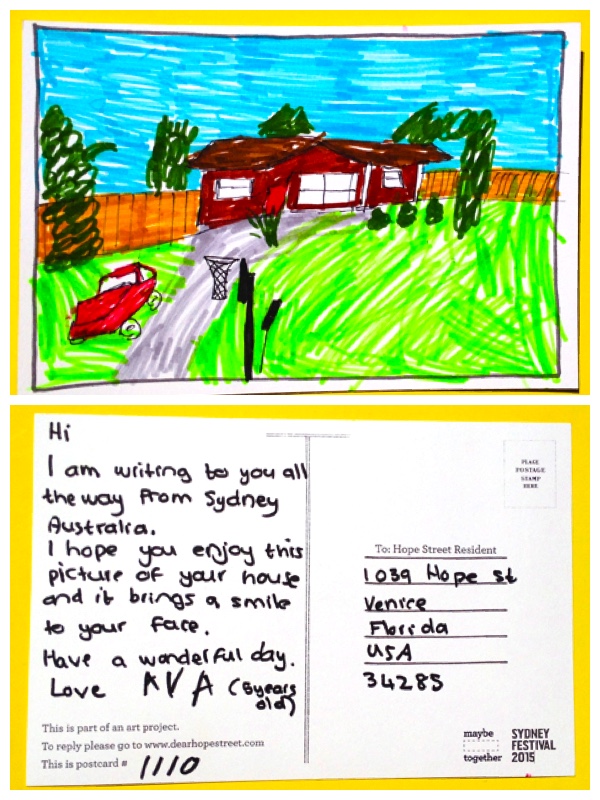 Hi
I am writing to you all
the way from Sydney
Australia.
I hope you enjoy this
picture of your house
and it brings a smile
to your face.
Have a wonderful day.
Love AVA (6years
old)
This is part of an art project.
To reply please go to www.dearhopestreet.com
This is postcard # 1110
PLACE
POSTAGE
STAMP
HERE
To: Hope Street Resident
1039 Hope st
Venice
Florida
USA
34285
maybe
together
SYDNEY
FESTIVAL
2015